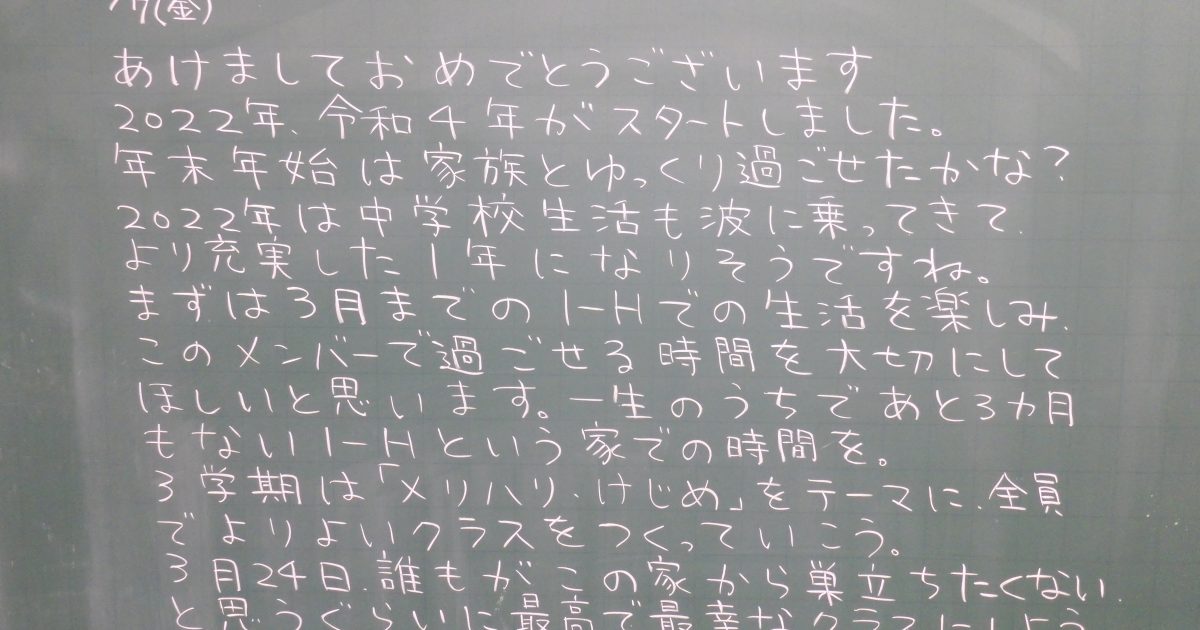 1/7(金)
あけましておめでとうございます
2022年、令和4年がスタートしました。
年末年始は家族とゆっくり過ごせたかな?
2022年は中学校生活も波に乗ってきて、
より充実した1年になりそうですね。
まずは3月までの1-Hでの生活を楽しみ、
このメンバーで過ごせる時間を大切にして
ほしいと思います。一生のうちであと3カ月
もない1-Hという家での時間を。
3学期は「メリハリ・けじめ」をテーマに、全員
でよりよいクラスをつくっていこう。
3月24日、誰もがこの家から巣立ちたくない、
と思うぐらいに最高で最幸なクラスにしよう